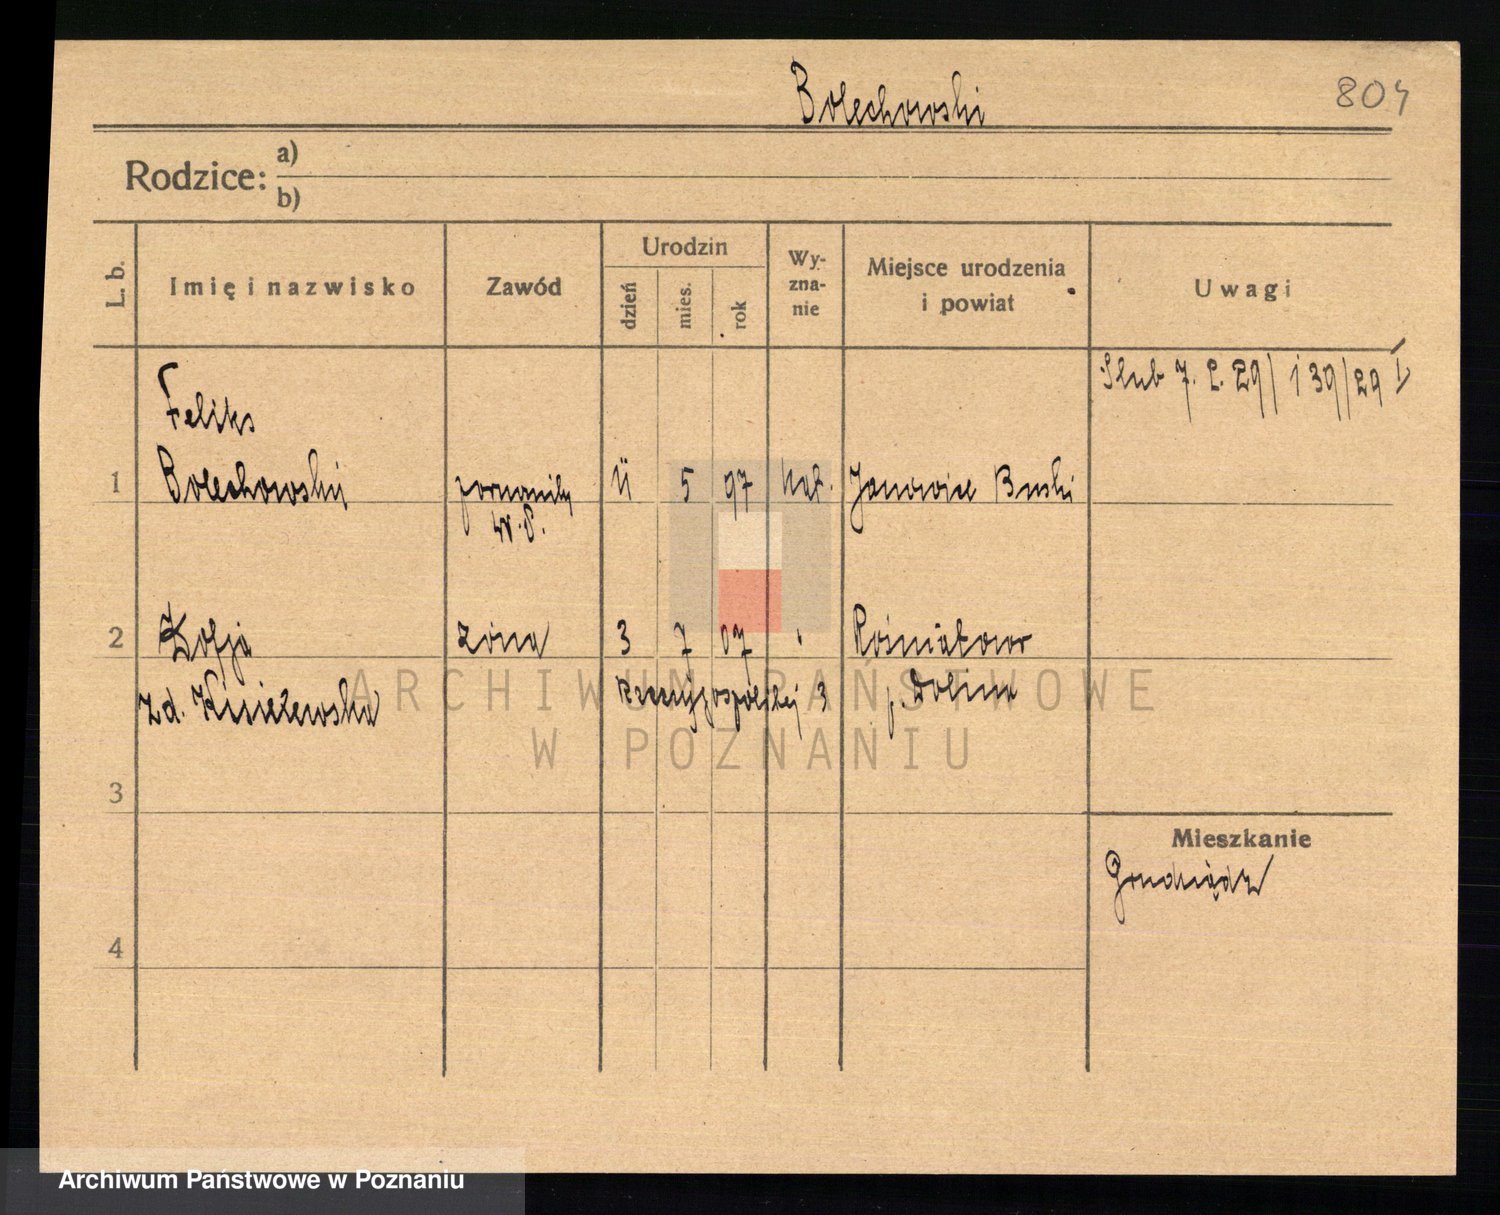 Bolechowski
804
Rodzice: a)
b)
L. b.
Imię i nazwisko
Zawód
Urodzin
dzień
mies.
rok
Wy-
zna-
nie
Miejsce urodzenia
i powiat
Uwagi
Ślub 7. 2. 29/ 139/29
Feliks
1 Bolechowski 5 97 kat. Janowice Buski
W.P.
2 Zofja żona 3 7 07 " Rośniatow
zd. Kisielewska Rzeczypospolitej 3 p. Dolina
3
Mieszkanie
Grudziądz
4
ARCHIWUM PAŃSTWOWE
W POZNANIU
Archiwum Państwowe w Poznaniu